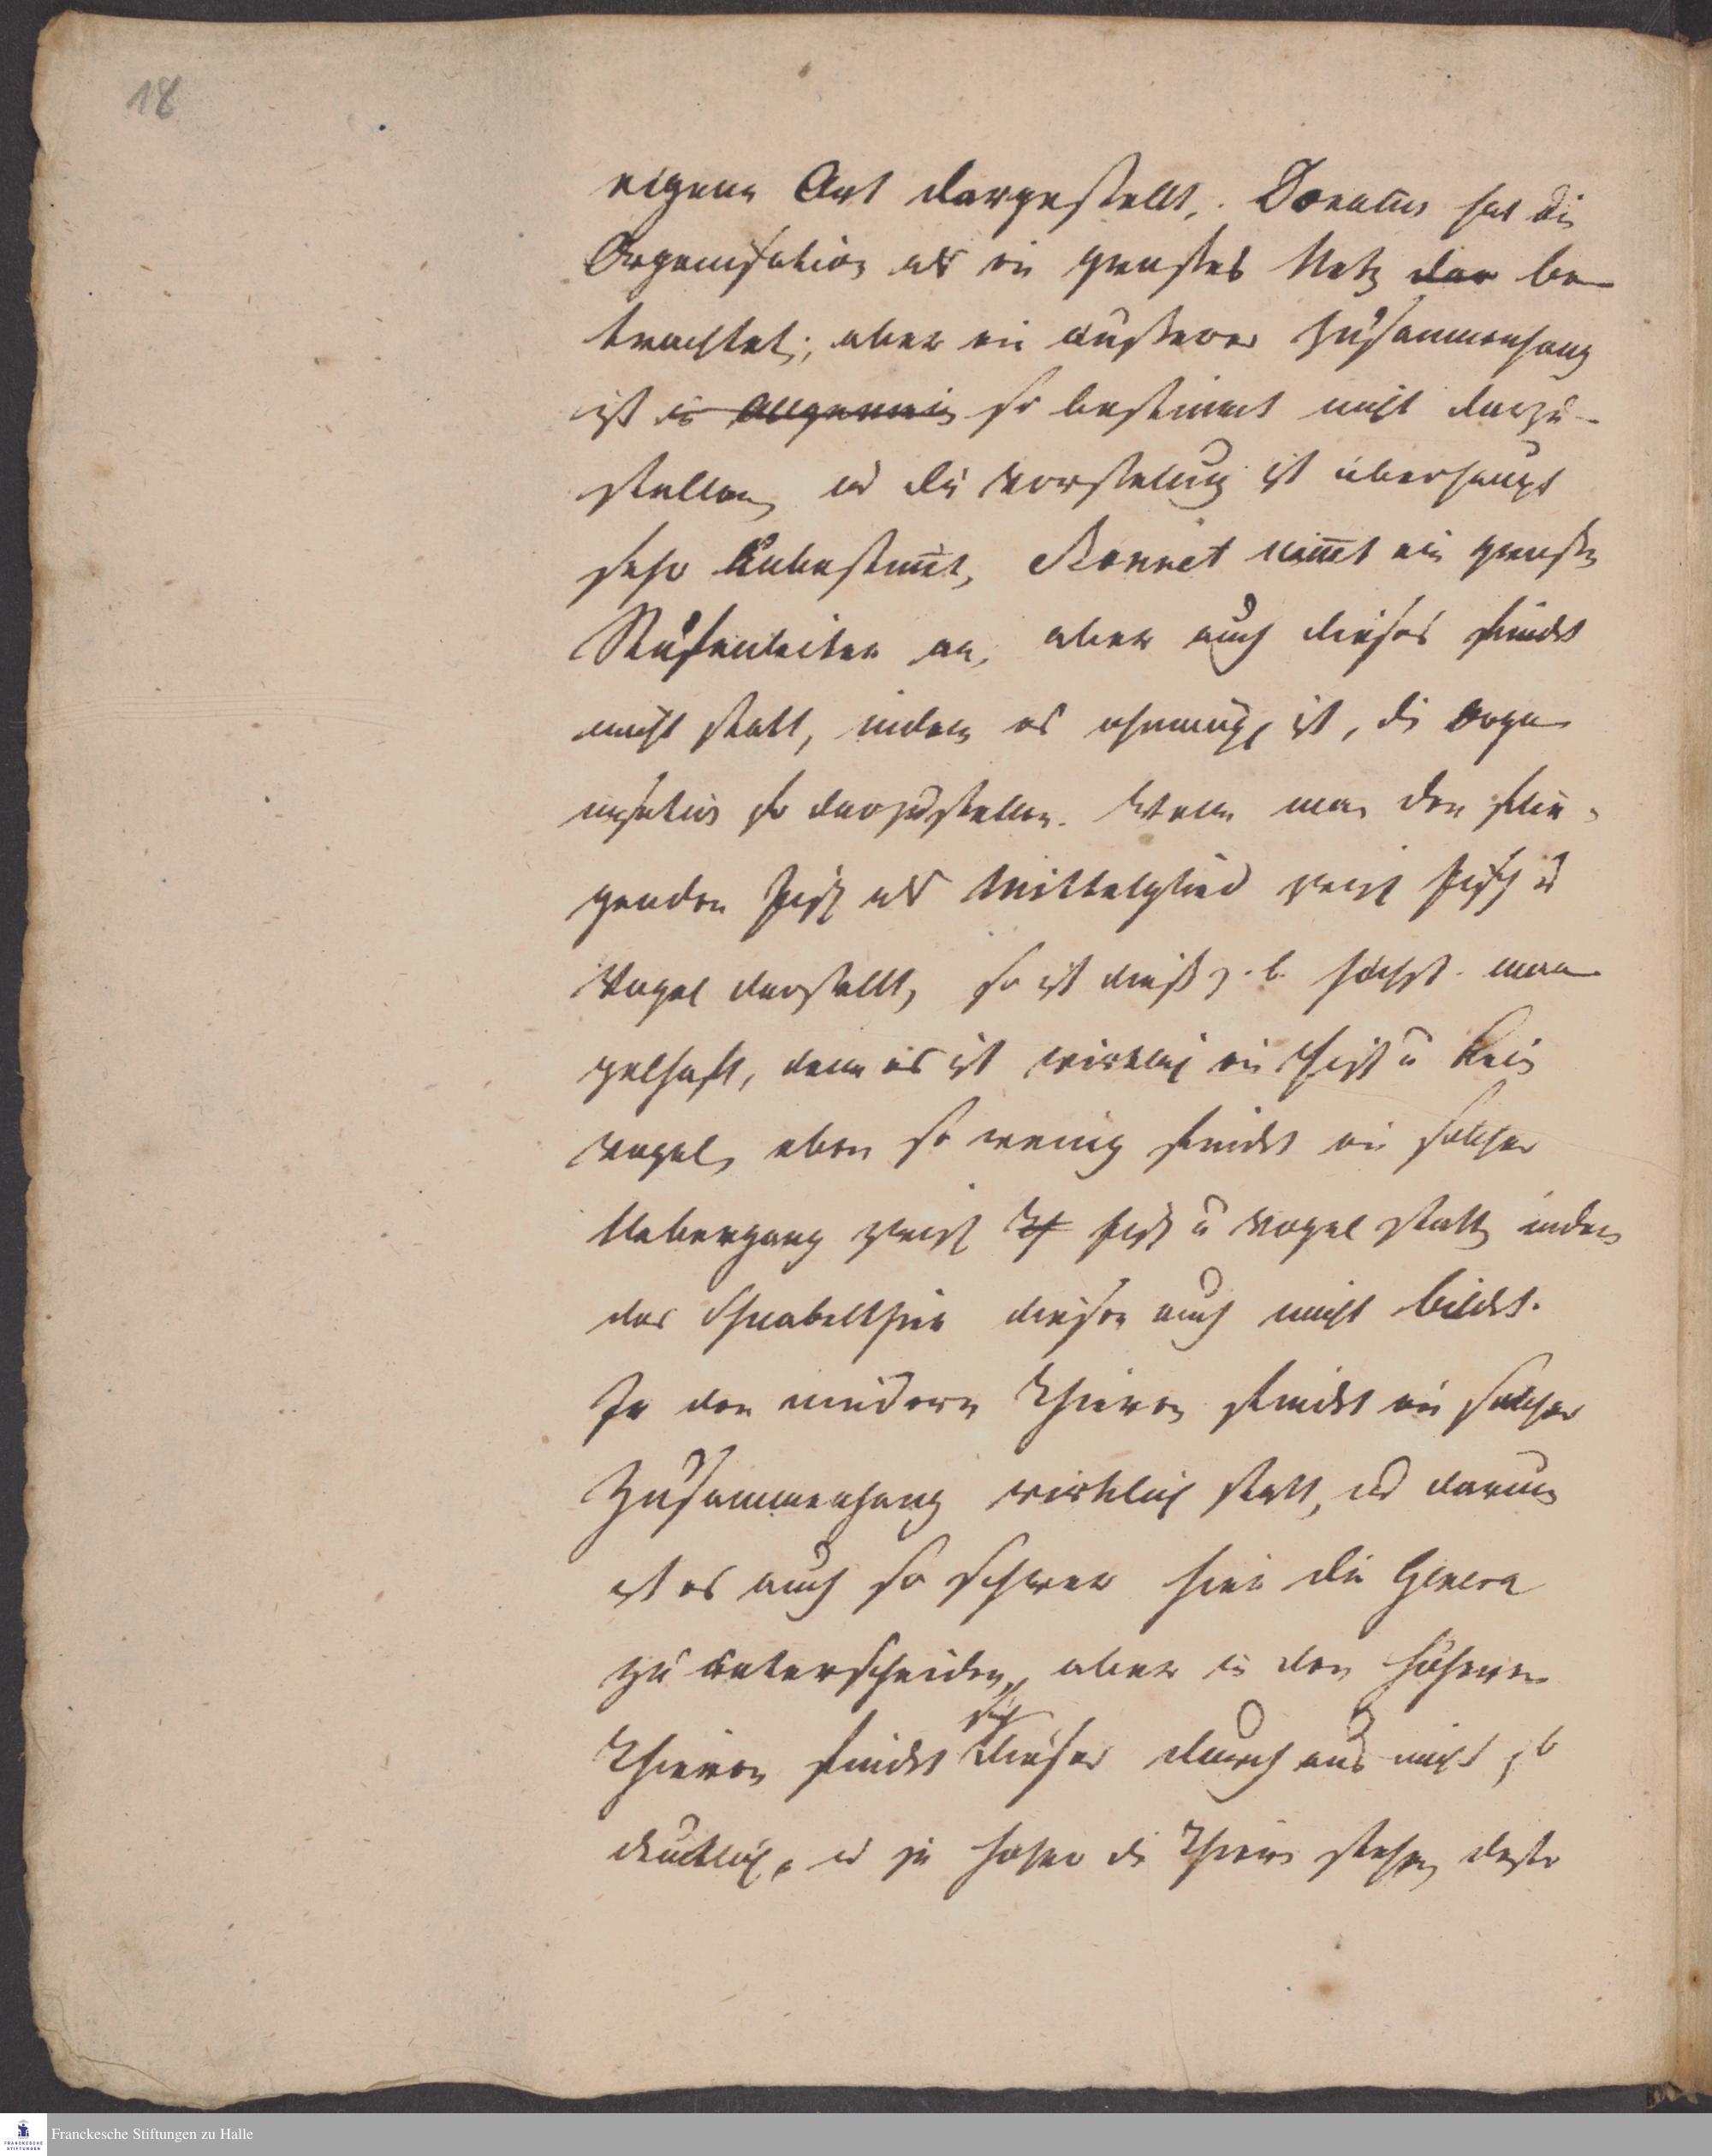 18
eigene Art dargestellt. Donatus hat die
Organisation als ein großes Netz der be-
trachtet; aber ein äußerer Zusammenhang
ist in Allgemein so bestimmt nicht darzu-
stellen, und die Vorstellung ist überhaupt
sehr unbestim̄t, Bonnet nim̄t eine große
Stufenleiter an, aber auch dieses findet
nicht statt, indem es ist, die Orga-
nisation so darzustellen. Wenn man den flie-
genden Fisch als Mittelglied zwisch Fisch u
Vogel darstellt, so ist dieß z. b. höchst man-
gelhaft, denn es ist wirklich ein Fisch u kein
Vogel, eben so wenig findet ein solcher
Uebergang zwisch Th Fisch u Vogel statt, indem
das Schnabelthier diesen auch nicht bildet.
In den niedern Thieren findet ein solcher
Zusammenhang wirklich statt, und darum
ist es auch so schwer hier die Genera
zu unterscheiden, aber in den höheren
sich
Thieren findet dieser durchaus nicht so
deutlich, und je höher die Thiere stehen, desto
Franckesche Stiftungen zu Halle
FRANCKESCHE
STIFTUNGEN